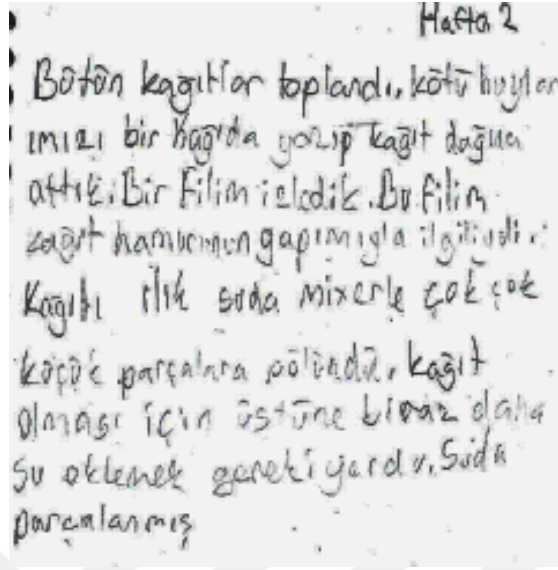 Hafta 2
Bütün kağıtlar toplandı, kötü huylar
ımızı bir kağıda yazıp kağıt dağına
attık. Bir Filim izledik. Bu filim
kağıt hamurunun yapımıyla ilgiliydi.
Kağıtı ılık suda mixerle çok çok
küçük parçalara bölündü. kağıt
olması için üstüne biraz daha
su eklemek gerekiyordu. Suda
parçalanmış